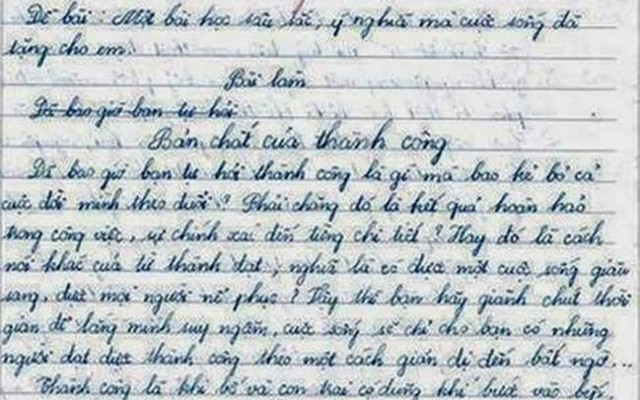 Đề bài: Một bài học sâu sắc, ý nghĩa mà cuộc sống đã
tặng cho em.
Bài làm
Đã bao giờ bạn tự hỏi
Bản chất của thành công
Đã bao giờ bạn tự hỏi thành công là gì mà bao kẻ bỏ cả
cuộc đời mình theo đuổi? Phải chăng đó là kết quả hoàn hảo
trong công việc, sự chính xác đến từng chi tiết? Hay đó là cách
nói khác của từ thành đạt, nghĩa là có được một cuộc sống giàu
sang, được mọi người nể phục? Vậy thì bạn hãy giành chút thời
gian để lắng mình suy ngẫm, cuộc sống sẽ chỉ cho bạn có những
người đạt được thành công theo một cách giản dị đến bất ngờ...
Thành công là khi bố và con trai có dũng khí bước vào bếp,